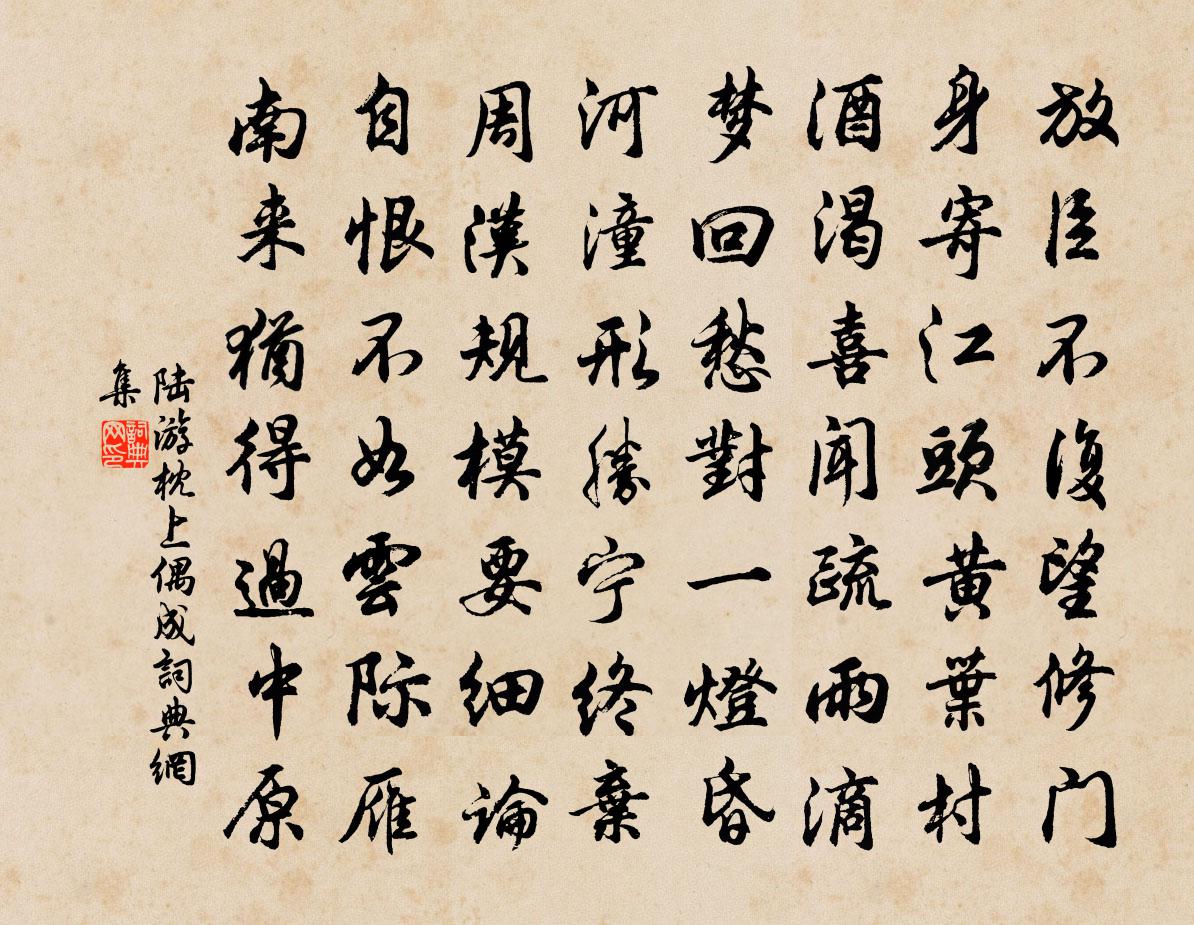 放臣不復望修门
身寄江頭黄葉村
酒渴喜闻疏雨滴
梦回愁對一燈昏
河潼形勝宁终棄
周漢規模要细論
自恨不如雲际雁
南来猶得過中原
陆游枕上偶成詞典網
集
詞典
网印